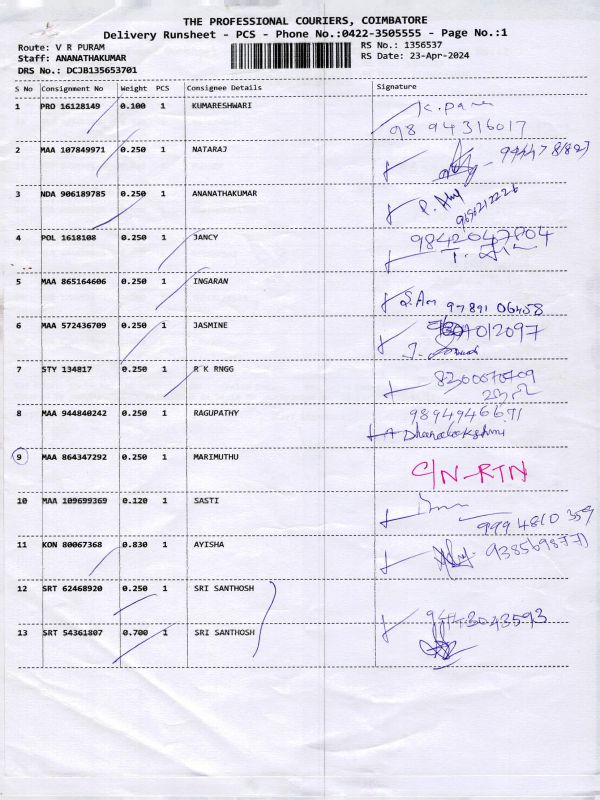 THE PROFESSIONAL COURIERS, COIMBATORE
Delivery Runsheet - PCS - Phone No.:0422-3505555 - Page No.:1
Route: V R PURAM RS No.: 1356537
Staff: ANANATHAKUMAR RS Date: 23-Apr-2024
DRS No.: DCJB135653701
S No Consignment No Weight PCS Consignee Details Signature
1 PRO 16128149 0.100 1 KUMARESHWARI
98 94316017
2 MAA 107849971 0.250 1 NATARAJ
3 NDA 906189785 0.250 1 ANANATHAKUMAR
4 POL 1618108 0.250 1 JANCY 9842047804
5 MAA 865164606 0.250 1 INGARAN
97891 06458
6 MAA 572436709 0.250 1 JASMINE
7 STY 134817 0.250 1 R K RNGG
8 MAA 944840242 0.250 1 RAGUPATHY 9894946671
Dhanalakshmi
9 MAA 864347292 0.250 1 MARIMUTHU C/N-RTN
10 MAA 109699369 0.120 1 SASTI
9994810359
11 KON 80067368 0.830 1 AYISHA
12 SRT 62468920 0.250 1 SRI SANTHOSH
13 SRT 54361807 0.700 1 SRI SANTHOSH